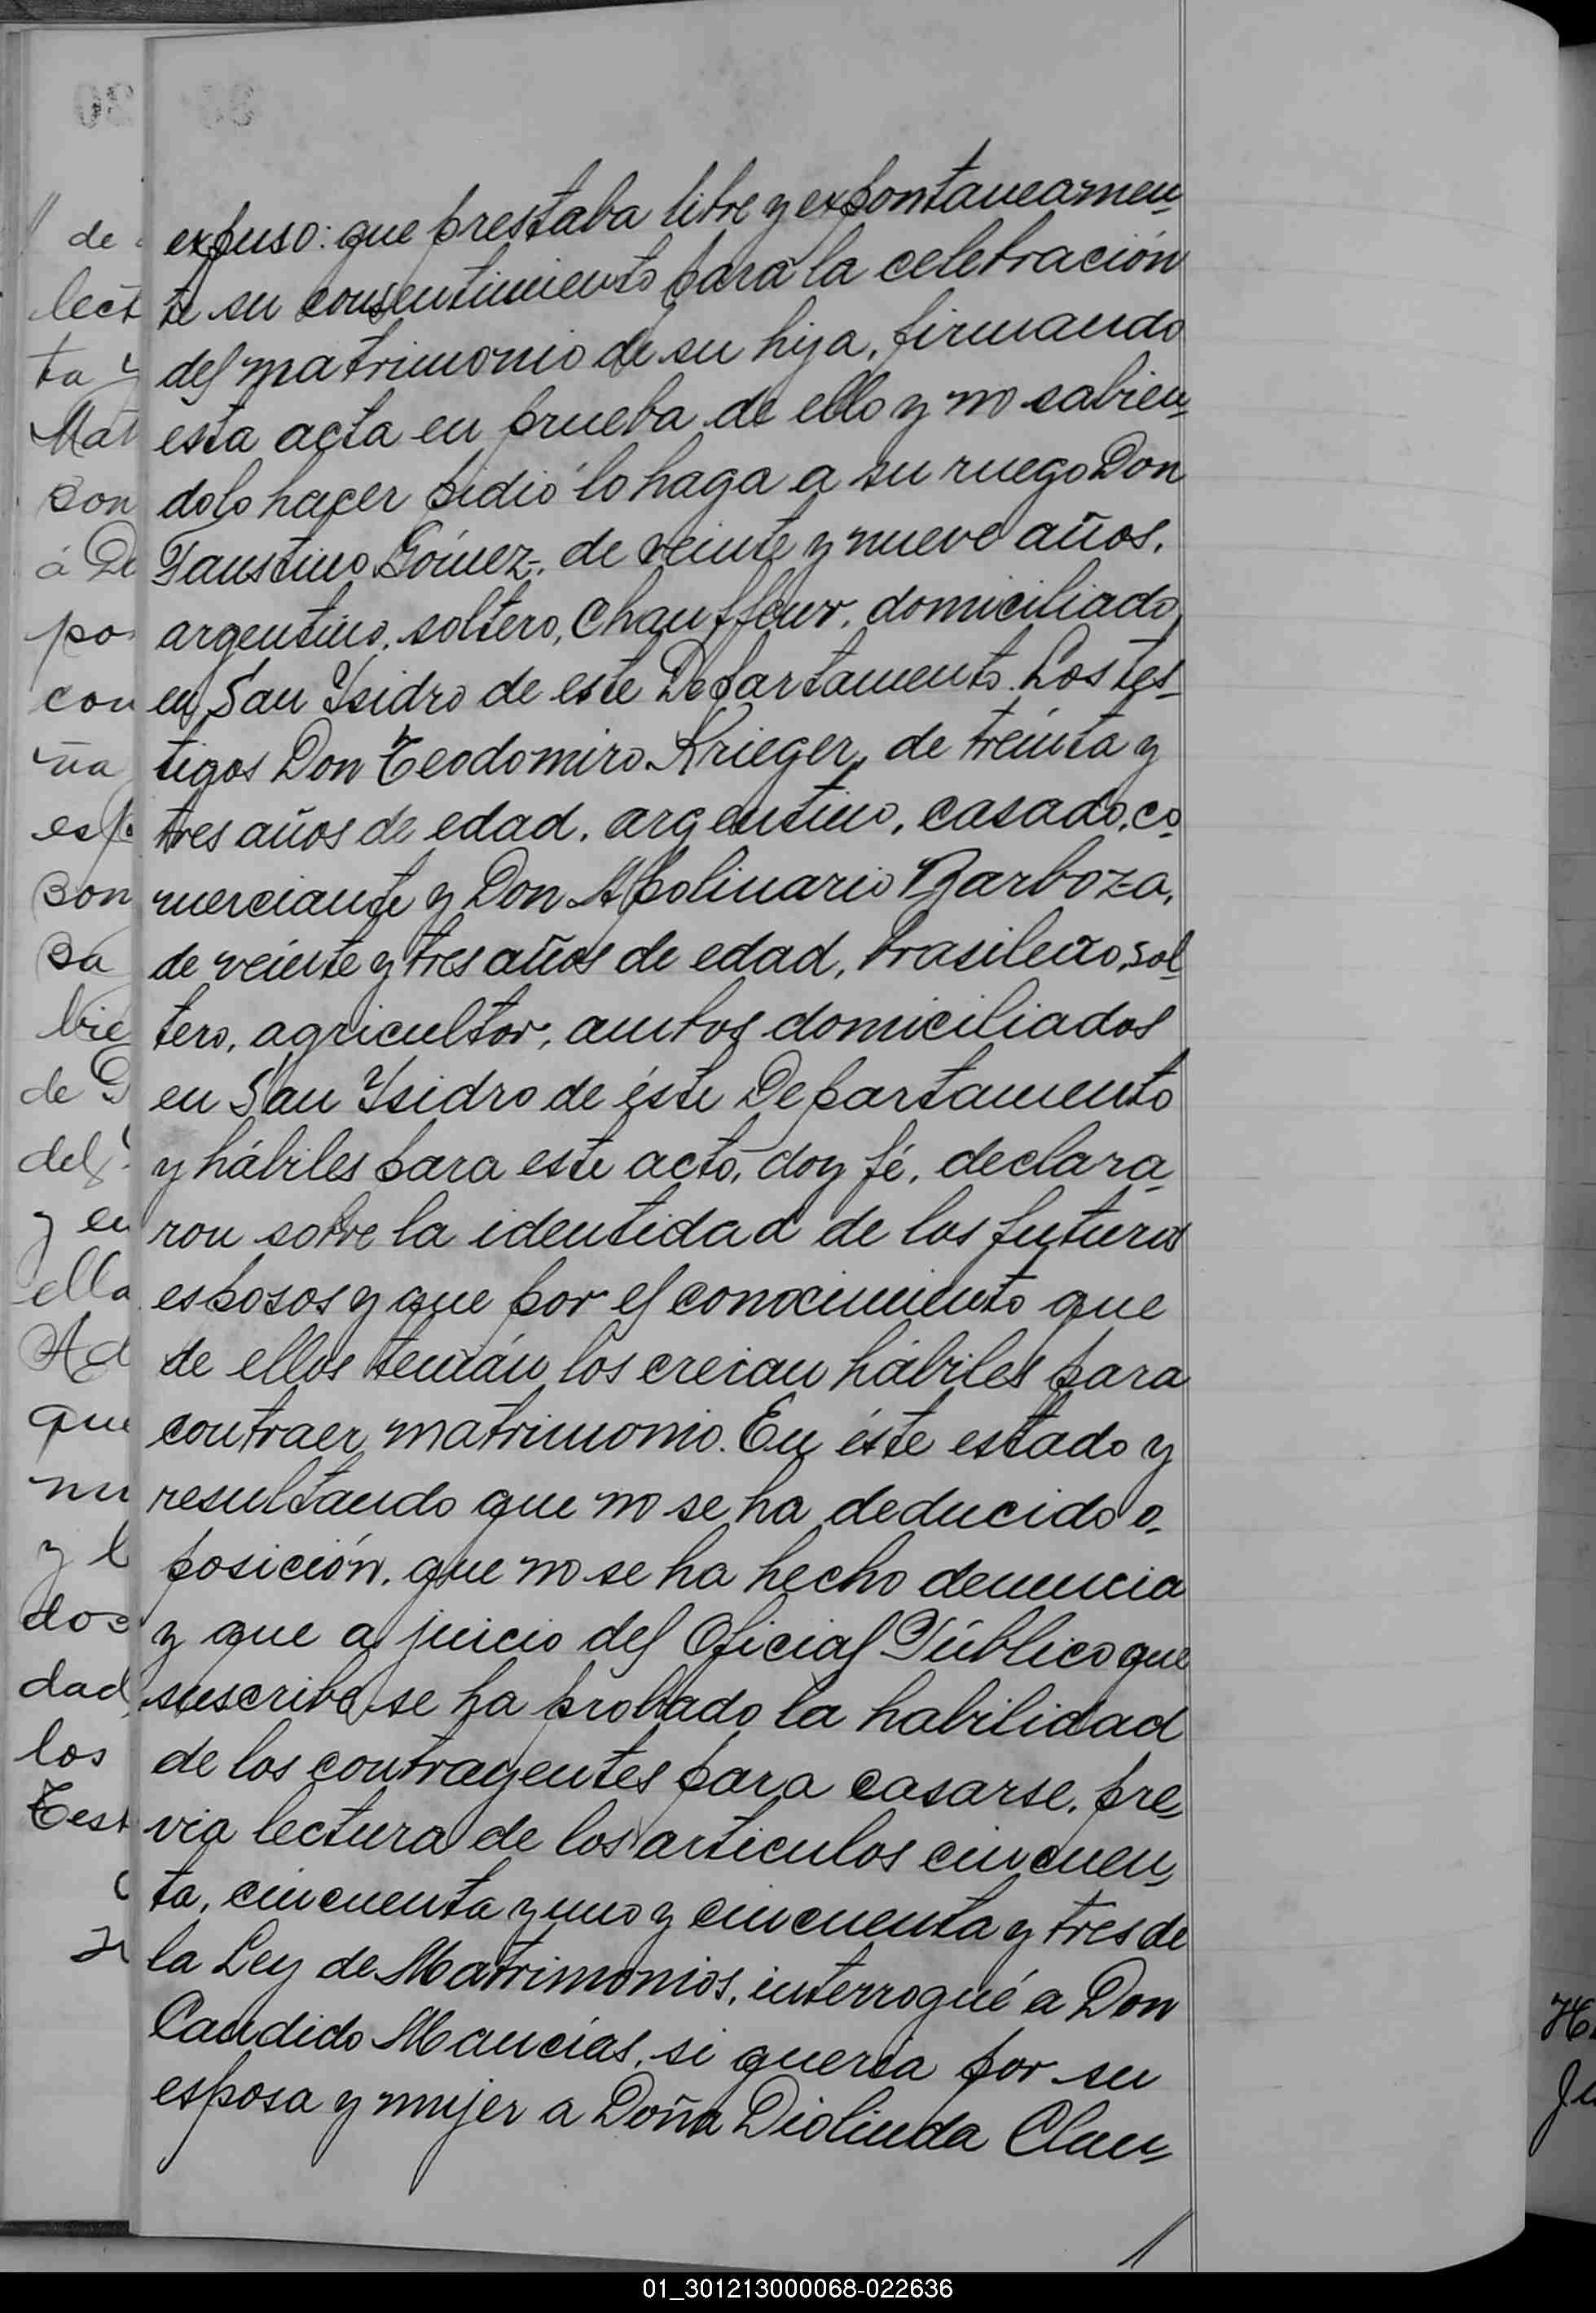 expuso: que prestaba libre y expontaneamen-
te su consentimiento para la celebración
del matrimonio de su hija, firmando
esta acta en prueba de ello y no sabien-
dolo hacer pidió lo haga a su ruego Don
Faustino Gómez, de veinte y nueve años,
argentino, soltero, Chauffeur, domiciliado
en San Isidro de este Departamento. Los tes-
tigos Don Teodomiro Krieger, de treinta y
tres años de edad, argentino, casado, co-
merciante y Don Apolinario Barboza,
de veinte y tres años de edad, brasilero, sol-
tero, agricultor, ambos domiciliados
en San Isidro de éste Departamento
y hábiles para este acto, doy fé, declara-
ron sobre la identidad de los futuros
esposos y que por el conocimiento que
de ellos tenián los creian hábiles para
contraer matrimonio. En éste estado y
resultando que no se ha deducido o-
posición, que no se ha hecho denuncia
y que a juicio del Oficial Público que
suscribe se ha probado la habilidad
de los contrayentes para casarse, pre-
via lectura de los articulos cincuen-
ta, cincuenta y uno y cincuenta y tres de
la Ley de Matrimonios, interrogué a Don
Candido Mancías, si queria por su
esposa y mujer a Doña Diolinda Clau-
01_301213000068-022636